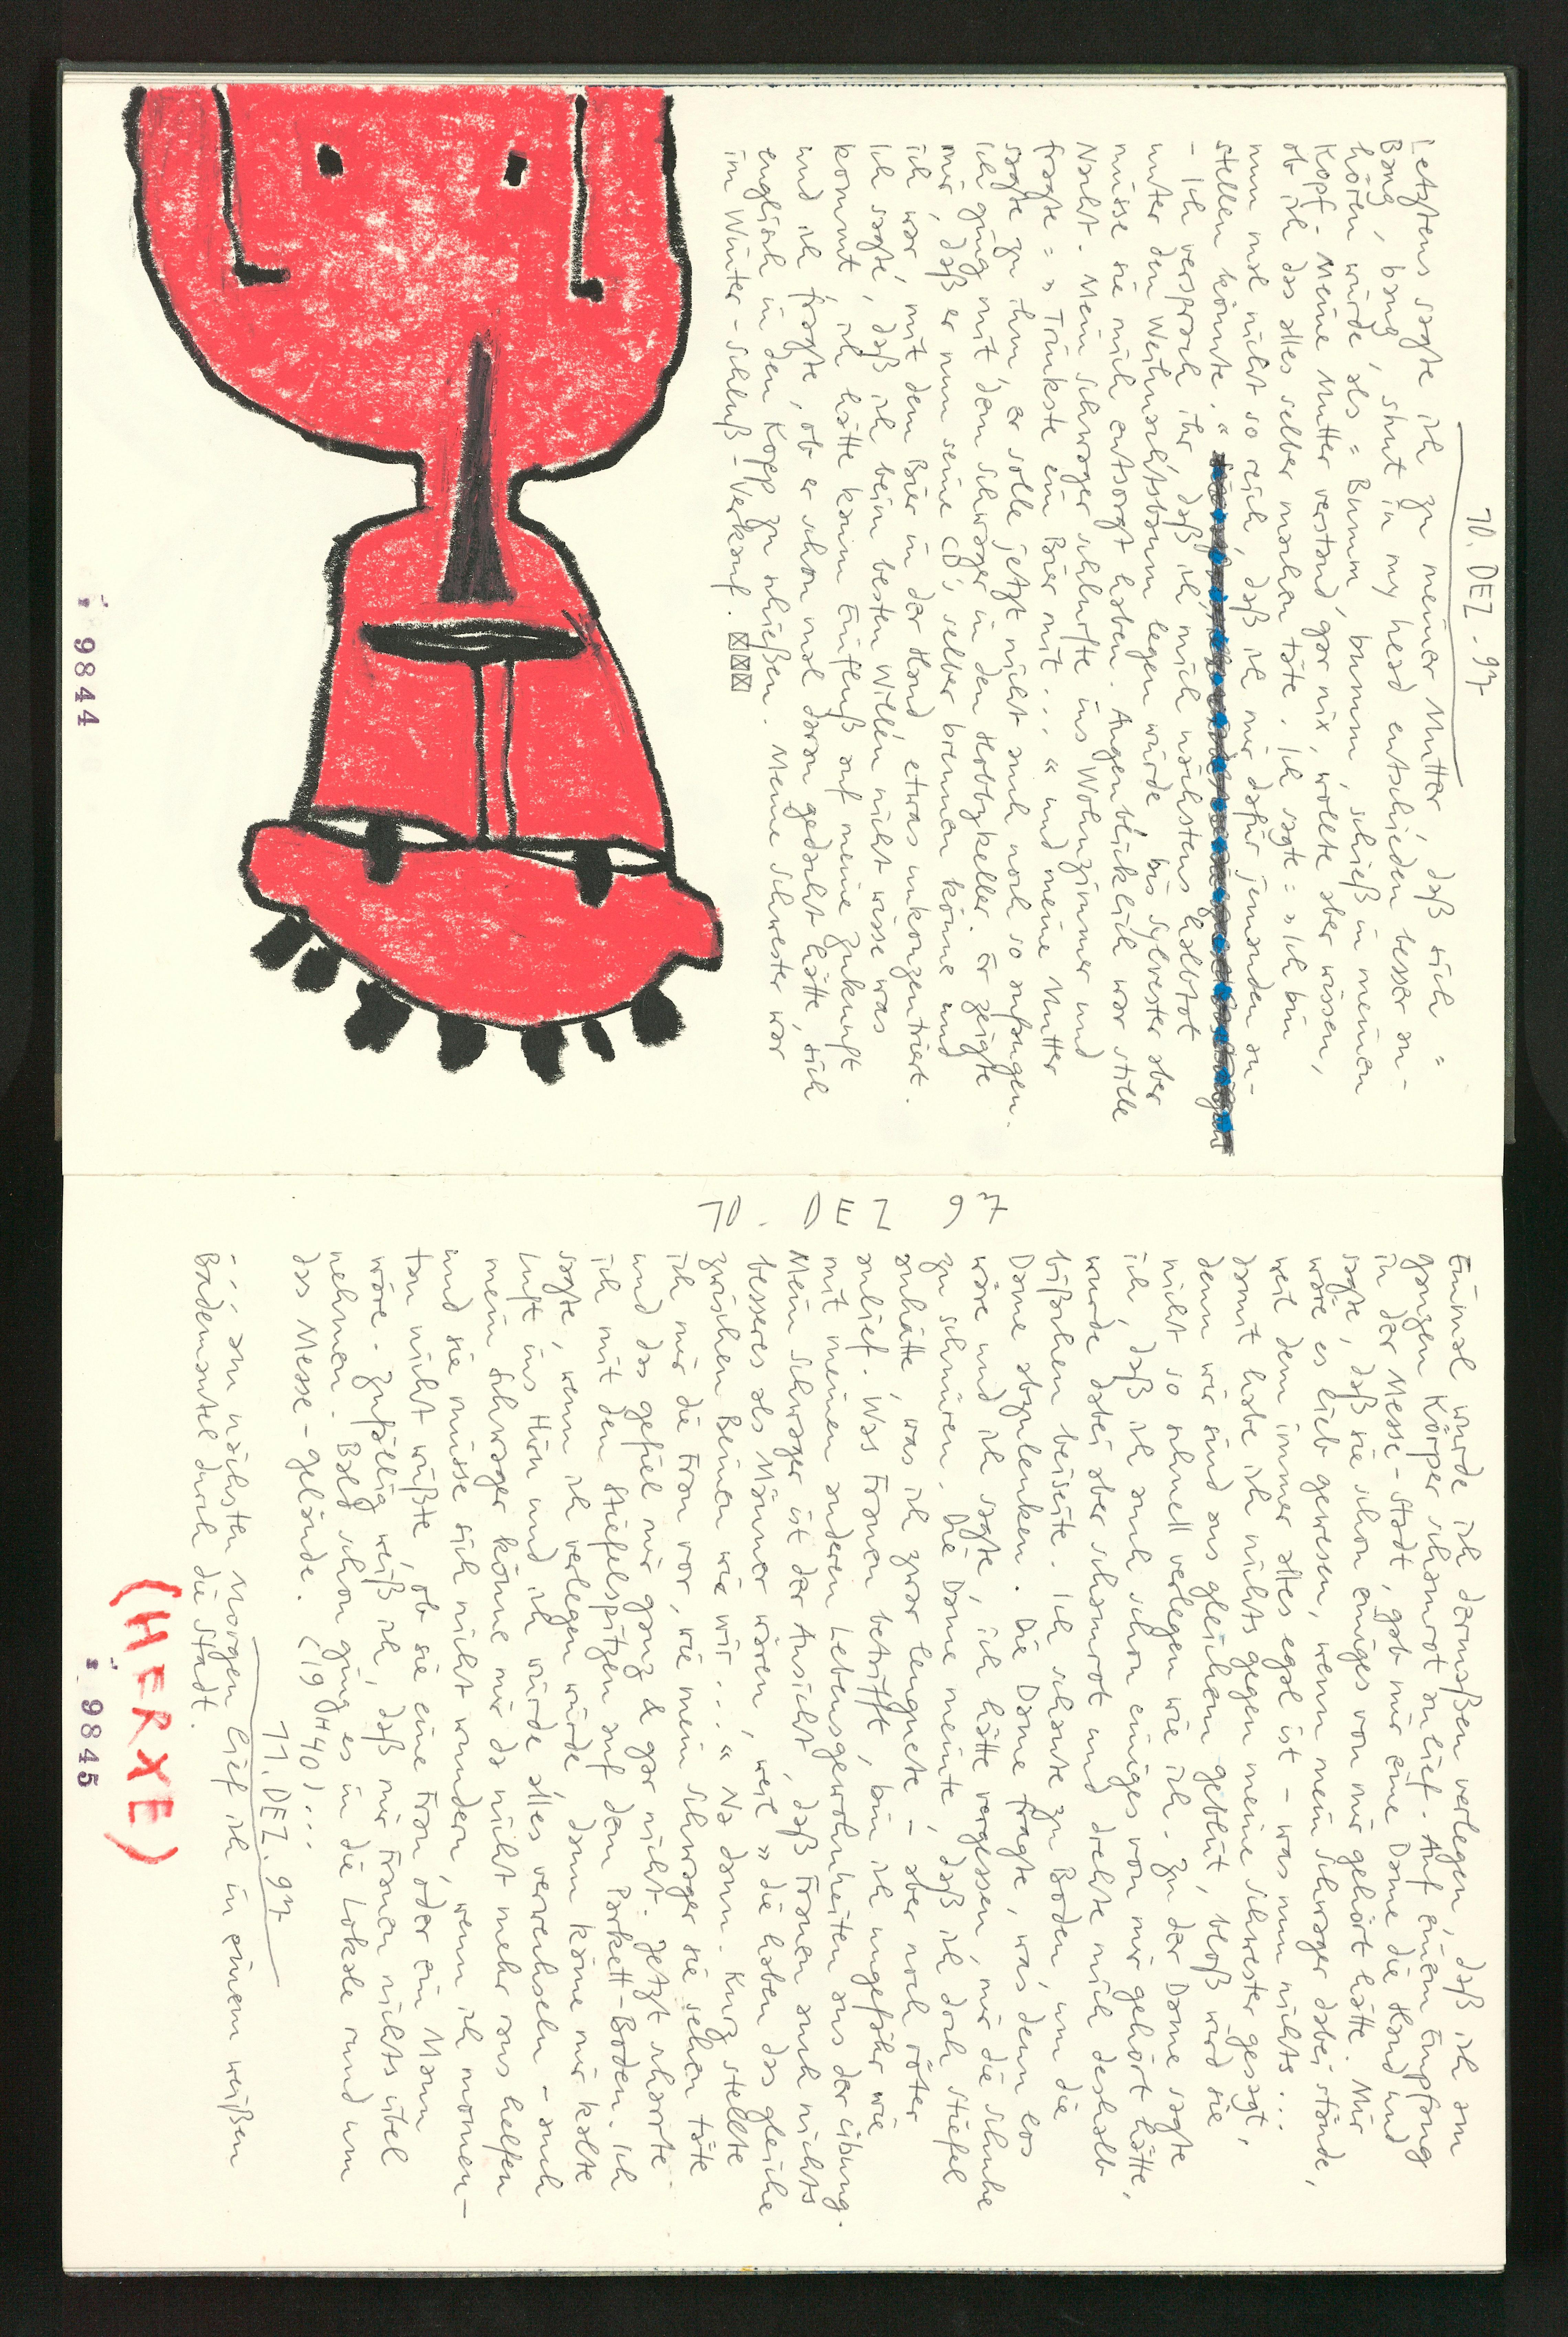 10. DEZ. 97
Letztens sagte ich zu meiner Mutter, daß sich =
Bang, bang, shut in my head entschieden besser an-
hören würde, als = Bumm, bumm, schieß in meinen
Kopf. Meine Mutter verstand gar nix, wollte aber wissen,
ob ich das alles selber machen täte. Ich sagte = » Ich bin
nun mal nicht so reich, daß ich mir dafür jemanden an-
stellen könnte. «
- Ich versprach ihr, daß ich mich nächstens halbtot
unter den Weihnachtsbaum legen würde - bis Sylvester aber
müsse sie mich entsorgt haben. Augenblicklich war stille
Nacht. Mein Schwager schlurfte ins Wohnzimmer und
fragte = » Trinkste ein Bier mit ... « und meine Mutter
sagte zu ihm, er solle jetzt nicht auch noch so anfangen.
Ich ging mit dem Schwager in den Hobbykeller. Er zeigte
mir, daß er nun seine CD's selber brennen könne und
ich war, mit dem Bier in der Hand, etwas unkonzentriert.
Ich sagte, daß ich beim besten Willen nicht wisse was
kommt, ich hätte keinen Einfluß auf meine Zukunft
und ich fragte, ob er schon mal daran gedacht hätte, sich
englisch in den Kopp zu schießen. Meine Schwester war
im Winter-Schluß-Verkauf.
9844
10. DEZ 97
Einmal wurde ich dermaßen verlegen, daß ich am
ganzen Körper schamrot anlief. Auf einem Empfang
in der Messe-Stadt, gab mir eine Dame die Hand und
sagte, daß sie schon einiges von mir gehört hätte. Mir
wäre es lieb gewesen, wenn mein Schwager dabei stände,
weil dem immer alles egal ist - was nun nichts ...
damit habe ich nichts gegen meine Schwester gesagt,
denn wir sind aus gleichem geblüt, bloß wird sie
nicht so schnell verlegen wie ich. Zu der Dame sagte
ich, daß ich auch schon einiges von mir gehört hätte,
wurde dabei aber schamrot und drehte mich deshalb
bißchen beiseite. Ich schaute zu Boden, um die
Dame abzulenken. Die Dame fragte, was denn los
wäre und ich sagte, ich hätte vergessen, mir die Schuhe
zu schnüren. Die Dame meinte, daß ich doch Stiefel
anhätte, was ich zwar leugnete - aber noch röter
anlief. Was Frauen betrifft, bin ich ungefähr wie
mit meinen anderen Lebensgewohnheiten aus der Übung.
Mein Schwager ist der Ansicht, daß Frauen auch nichts
besseres als Männer wären, weil » die haben das gleiche
zwischen Beinen wie wir ... « Na dann. Kurz stellte
ich mir die Frau vor, wie mein Schwager sie sehen täte
und das gefiel mir ganz & gar nicht. Jetzt scharrte
ich mit den Stiefelspitzen auf dem Parkett-Boden. Ich
sagte, wenn ich verlegen würde, dann käme mir kalte
Luft ins Hirn und ich würde alles verwechseln - auch
mein Schwager könne mir da nicht mehr raus helfen
und sie müsse sich nicht wundern, wenn ich momen-
tan nicht wüßte, ob sie eine Frau oder ein Mann
wäre. Zufällig weiß ich, daß mir Frauen nichts übel
nehmen. Bald schon ging es in die Lokale rund um
das Messe-gelände. (19 OH 40) ...
11. DEZ. 97
... am nächsten Morgen lief ich in einem weißen
Bademantel durch die Stadt.
(HERXE)
9845